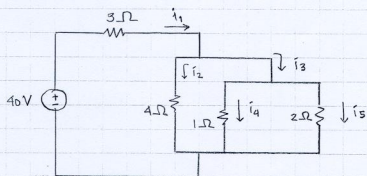 3Ω i₁
i₂ i₃
40V ± 4Ω 1Ω i₄ 2Ω i₅